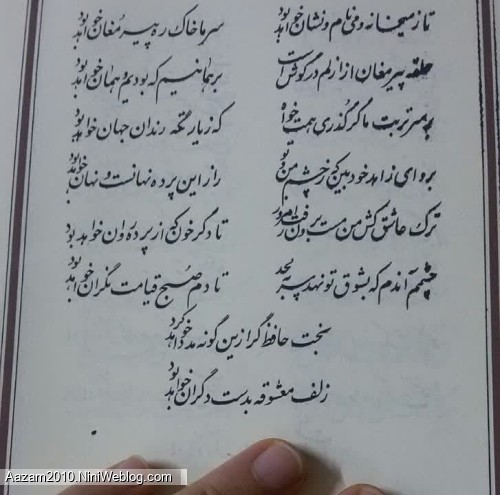 تا ز میخانه و می نام و نشان خواهد بود سر ما خاک ره پیر مغان خواهد بود
حلقه پیر مغان از ازلم در گوش است بر همانیم که بودیم و همان خواهد بود
بر سر تربت ما گر گذری همت خواه که زیارتگه رندان جهان خواهد بود
برو ای زاهد خودبین که ز چشم من و تو راز این پرده نهانست و نهان خواهد بود
ترک عاشق کش من مست برون رفت امروز تا دگر خون که از پرده روان خواهد بود
چشمم آندم که بشوق تو نهد سر به لحد تا دم صبح قیامت نگران خواهد بود
بخت حافظ گر ازین گونه مدد خواهد کرد
زلف معشوقه بدست دگران خواهد بود
Aazam2010.NiniWeblog.com